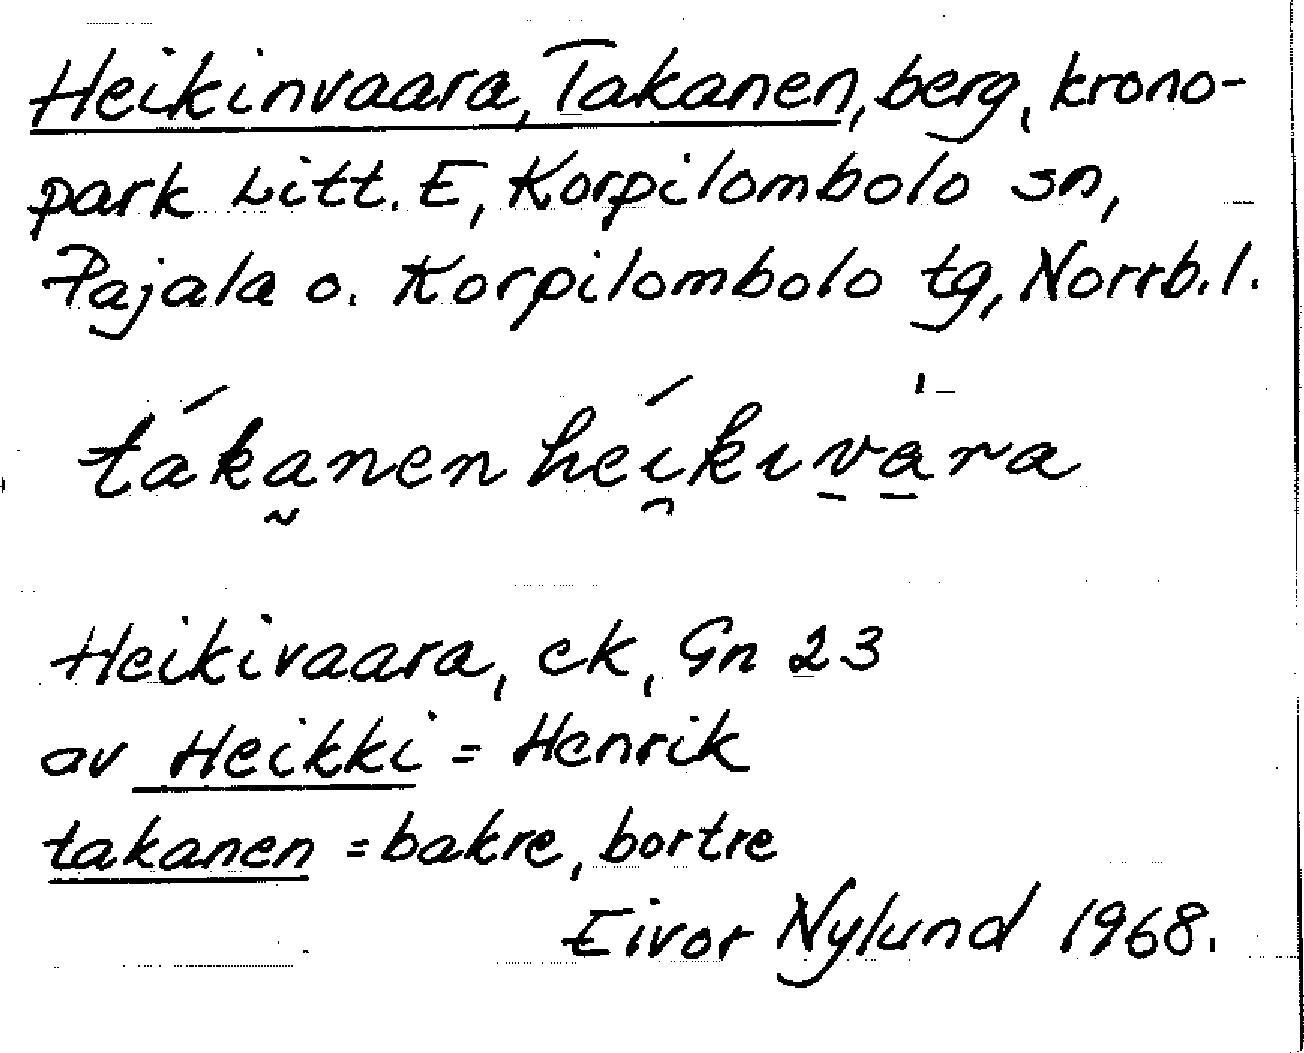 Heikinvaara, Takanen, berg, krono-
park Litt. E, Korpilombolo sn,
Pajala o. Korpilombolo tg, Norrb. l.
tákanen heíkivàra
Heikivaara, ek, Gn 23
av Heikki = Henrik
takanen = bakre, bortre
Eivor Nylund 1968.